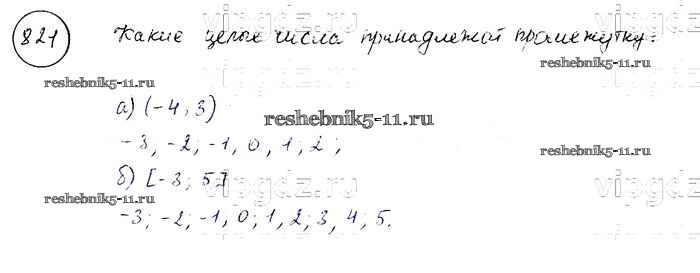 821 Какие целые числа принадлежат промежутку:
vipgdz.ru
reshebnik5-11.ru
reshebnik5-11.ru
а) (-4; 3)
reshebnik5-11.ru
-3, -2, -1, 0, 1, 2;
reshebnik5-11.ru
vipgdz.ru
б) [-3; 5]
vipgdz.ru
reshebnik5-11.ru
reshebnik5-11.ru
-3; -2; -1, 0; 1, 2; 3, 4; 5.
vipgdz.ru